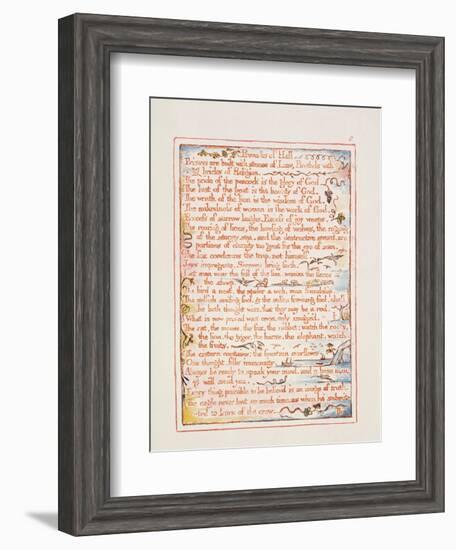 8
Proverbs of Hell
Prisons are built with stones of Law, Brothels with
bricks of Religion.
The pride of the peacock is the glory of God.
The lust of the goat is the bounty of God.
The wrath of the lion is the wisdom of God.
The nakedness of woman is the work of God.
Excess of sorrow laughs. Excess of joy weeps.
The roaring of lions, the howling of wolves, the raging
of the stormy sea, and the destructive sword, are
portions of eternity too great for the eye of man.
The fox condemns the trap, not himself.
Joys impregnate. Sorrows bring forth.
Let man wear the fell of the lion, woman the fleece of
the sheep.
The bird a nest, the spider a web, man friendship.
The selfish smiling fool, & the sullen frowning fool, shall
be both thought wise, that they may be a rod.
What is now proved was once, only imagin'd.
The rat, the mouse, the fox, the rabbit; watch the roots,
the lion, the tyger, the horse, the elephant, watch
the fruits.
The cistern contains; the fountain overflows
One thought, fills immensity.
Always be ready to speak your mind, and a base man
will avoid you.
Every thing possible to be believ'd is an image of truth.
The eagle never lost so much time, as when he submit-
-ted to learn of the crow.